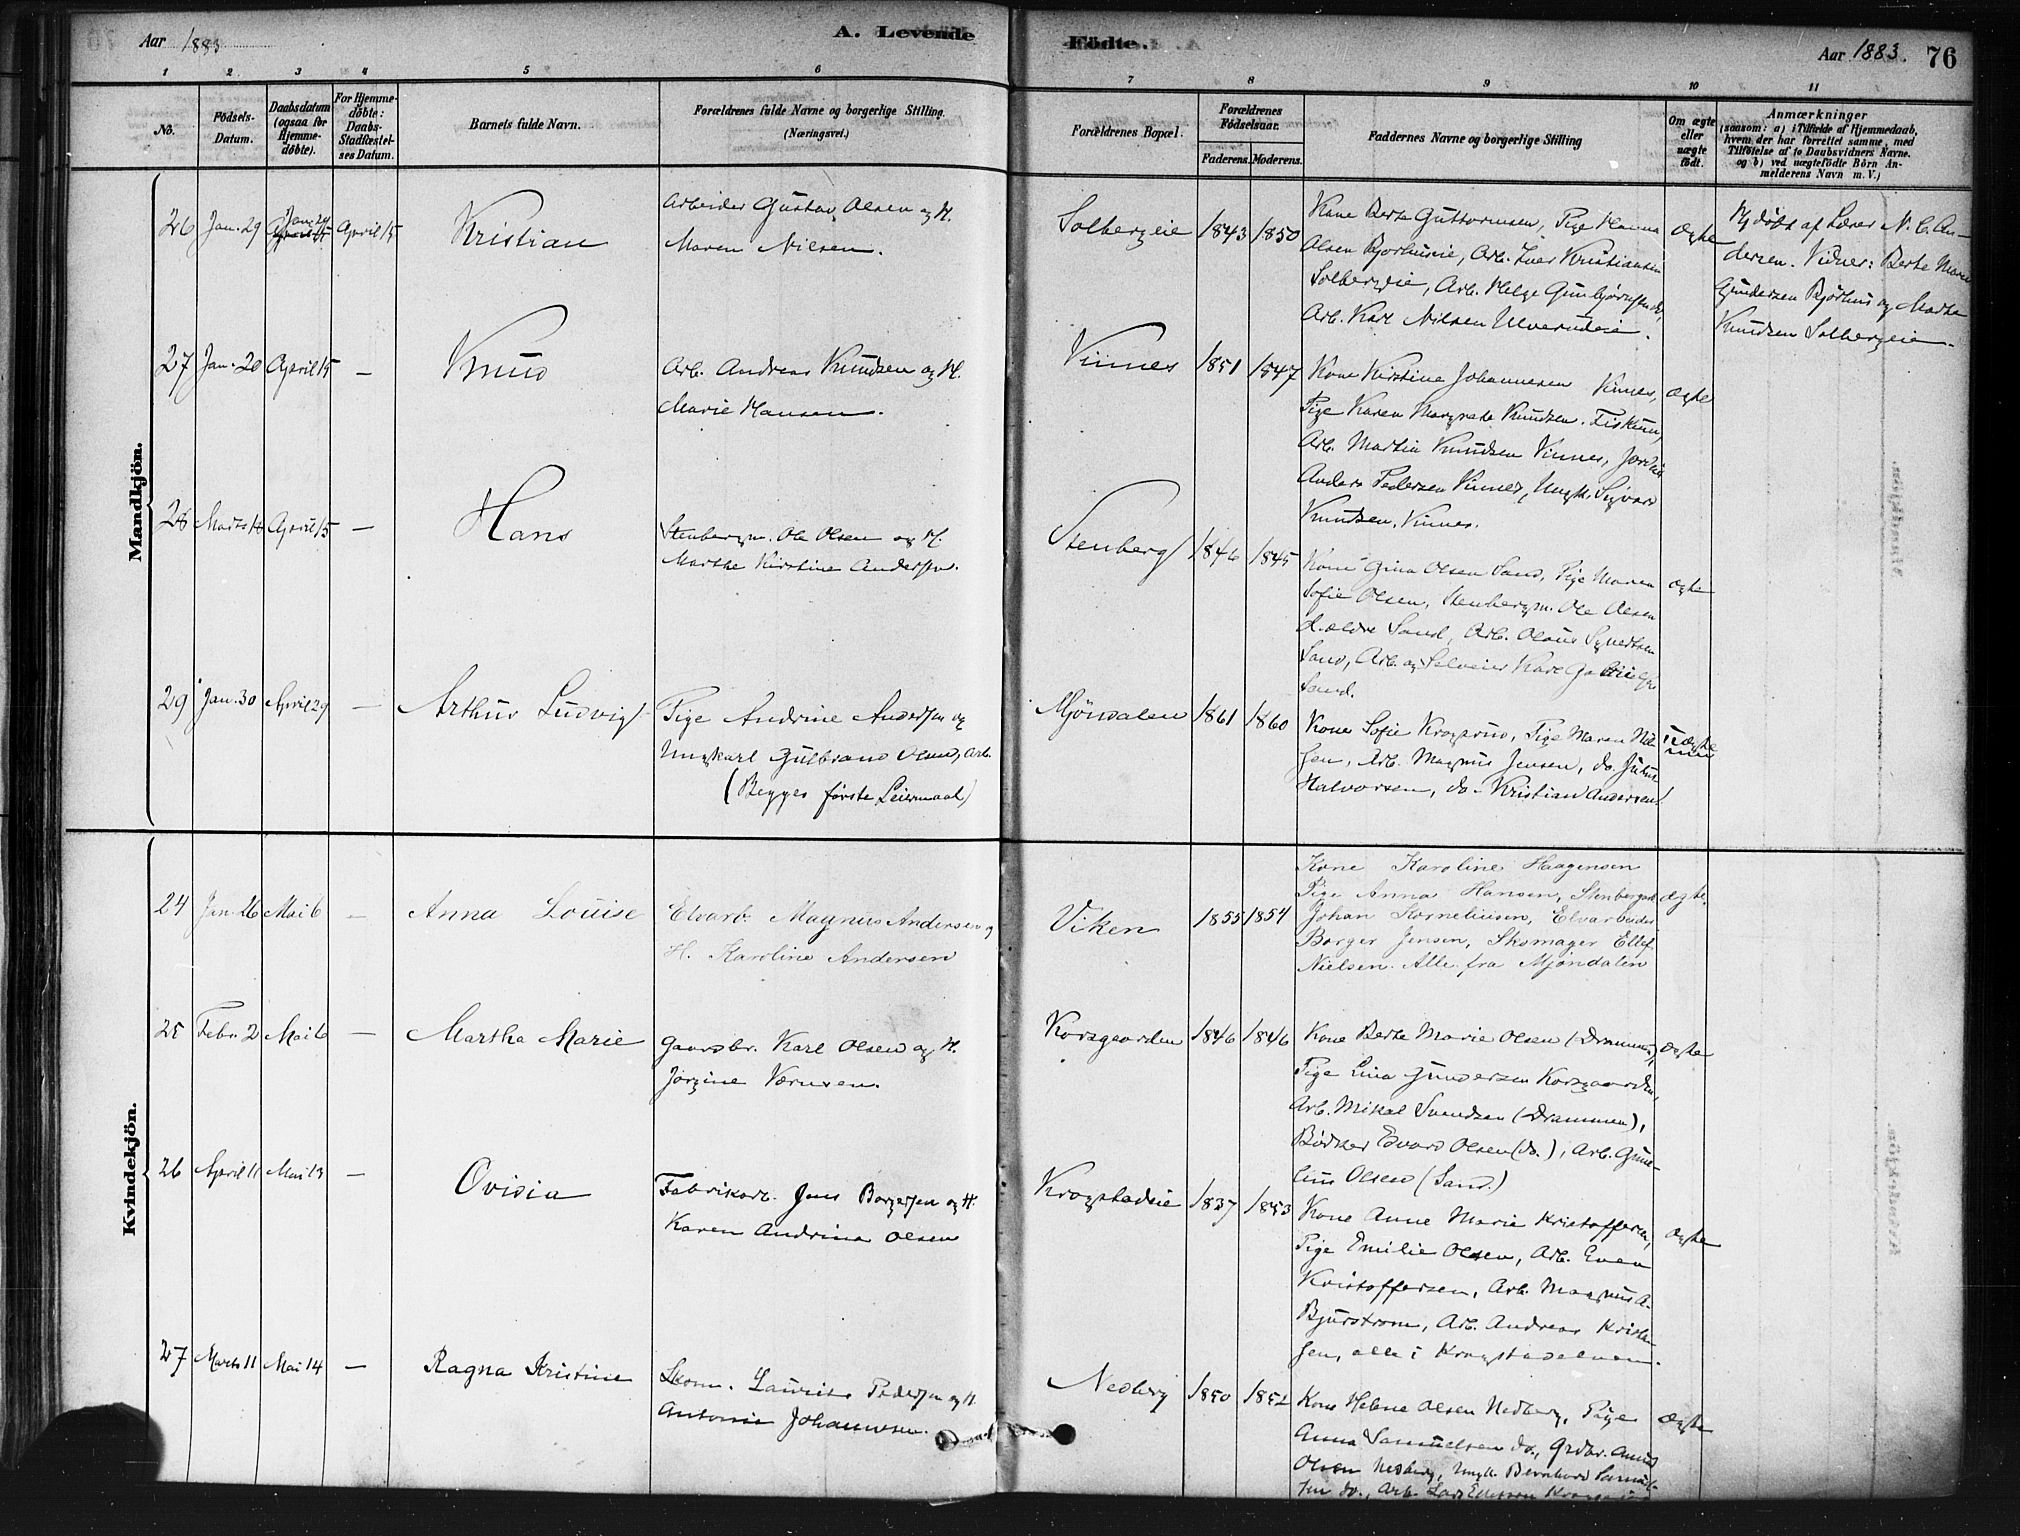 Aar 1883
A. Levende
Födte.
Aar 1883.
76
1 2 3 4 5 6 7 8 9 10 11
No.
Födsels-
Datum.
Daabsdatum
(ogsaa for
Hjemme-
döbte).
For Hjemme-
döbte:
Daabs-
Stadfæstel-
ses Datum.
Barnets fulde Navn.
Forældrenes fulde Navne og borgerlige Stilling.
(Næringsvei.)
Forældrenes Bopæl.
Forældrenes
Födselsaar.
Faderens. Moderens.
Faddernes Navne og borgerlige Stilling
Om ægte
eller
uægte
födt.
Anmærkninger
(saasom: a) i Tilfælde af Hjemmedaab,
hvem der har forrettet samme, med
Tilföielse af to Daabsvidners Navne.
og b) ved uægtefödte Börn An-
melderens Navn m. V.)
Mandkjön.
26 Jan. 29 Jan. 29 April 15 April 15 Kristian
Arbeider Gustav Olsen og H.
Maren Nilsen.
Solbergeie 1843 1850
Kone Berte Guttormsen, Pige Hanna
Olsen Bjorhuseie, Arb. Iver Kristiansen
Solbergeie, Arb. Helge
Arb. Karl Nilsen Ulverudeie.
Ægte
Hjdöbt af Lærer N. C. An-
dersen. Vidner: Berte Marie
Gundersen Bjørhus og Marthe
Knudsen Solbergeie.
27 Jan. 20 April 15 — Knud
Arb. Andreas Knudsen og H.
Marie Hansen.
Vinnes 1851 1847
Kone Kirstine Johannesen Vinnes,
Pige Karen Margrete Knudsen. Fiskum,
Arb. Martin Knudsen Vinnes,
Anders Pedersen Vinnes, Ungk. Sigvard
Knudsen, Vinnes.
ægte
28 Marts April 15 — Hans
Stenbergm. Ole Olsen og H.
Marthe Kirstine Andersen.
Stenberg 1846 1845
Kone Gina Olsen Sand, Pige Maren
Sofie Olsen, Stenbergm. Ole Olsen
d. ældre Sand, Arb. Olaus Syvertsen
Sand, Arb. og Selveier Karl
Sand.
ægte
29 Jan. 30 April 29 — Arthur Ludvig
Pige Andrine Andersen og
Ungkarl Gulbrand Olsen, Arb.
(Begges første Leiermaal)
Mjöndalen 1861 1860
Kone Sofie Krogsrud, Pige Maren Nil-
sen, Arb. Magnus Jensen, do. Julius
Halvorsen, do. Kristian Andersen.
uægte
Kvindekjön.
24 Jan. 26 Mai 6 — Anna Louise
Elvarb. Magnus Andersen og
H. Karoline Andersen
Viken 1855 1854
Kone Karoline Haagensen
Pige Anna Hansen, Stenbergarb.
Johan Korneliusen, Elvarbeider
Borger Jensen, Skomager Ellef
Nielsen. Alle fra Mjöndalen
ægte.
25 Febr. 2 Mai 6 — Martha Marie
Gaardbr. Karl Olsen og H.
Jørgine Værnsen.
Korsgaarden 1846 1846
Kone Berte Marie Olsen (Drammen),
Pige Lina Gundersen Korsgaarden,
Arb. Mikal Svendsen (Drammen),
Bødker Edvard Olsen (do.), Arb. Gune-
lius Olsen (Sand.)
ægte
26 April 11 Mai 13 — Ovidia
Fabrikarb. Jens Borgersen og H.
Karen Andrine Olsen
Krogstadeie 1837 1843
Kone Anne Marie Kristoffersen,
Pige Emilie Olsen, Arb. Even
Kristoffersen, Arb. Magnus A.
Bjurstrøm, Arb. Andreas Kristen-
sen, alle i Krogstadelven.
ægte
27 Marts 11 Mai 14 — Ragna Kristine
Skom. Laurits Pedersen og H.
Antonie Johannesen.
Nedberg 1850 1852
Kone Helene Olsen Nedberg, Pige
Anna Samuelsen do., Grdbr. Anders
Olsen Nedberg, Ungk. Bernhard Samuel-
sen do., Arb. Lars Ellefsen
ægte